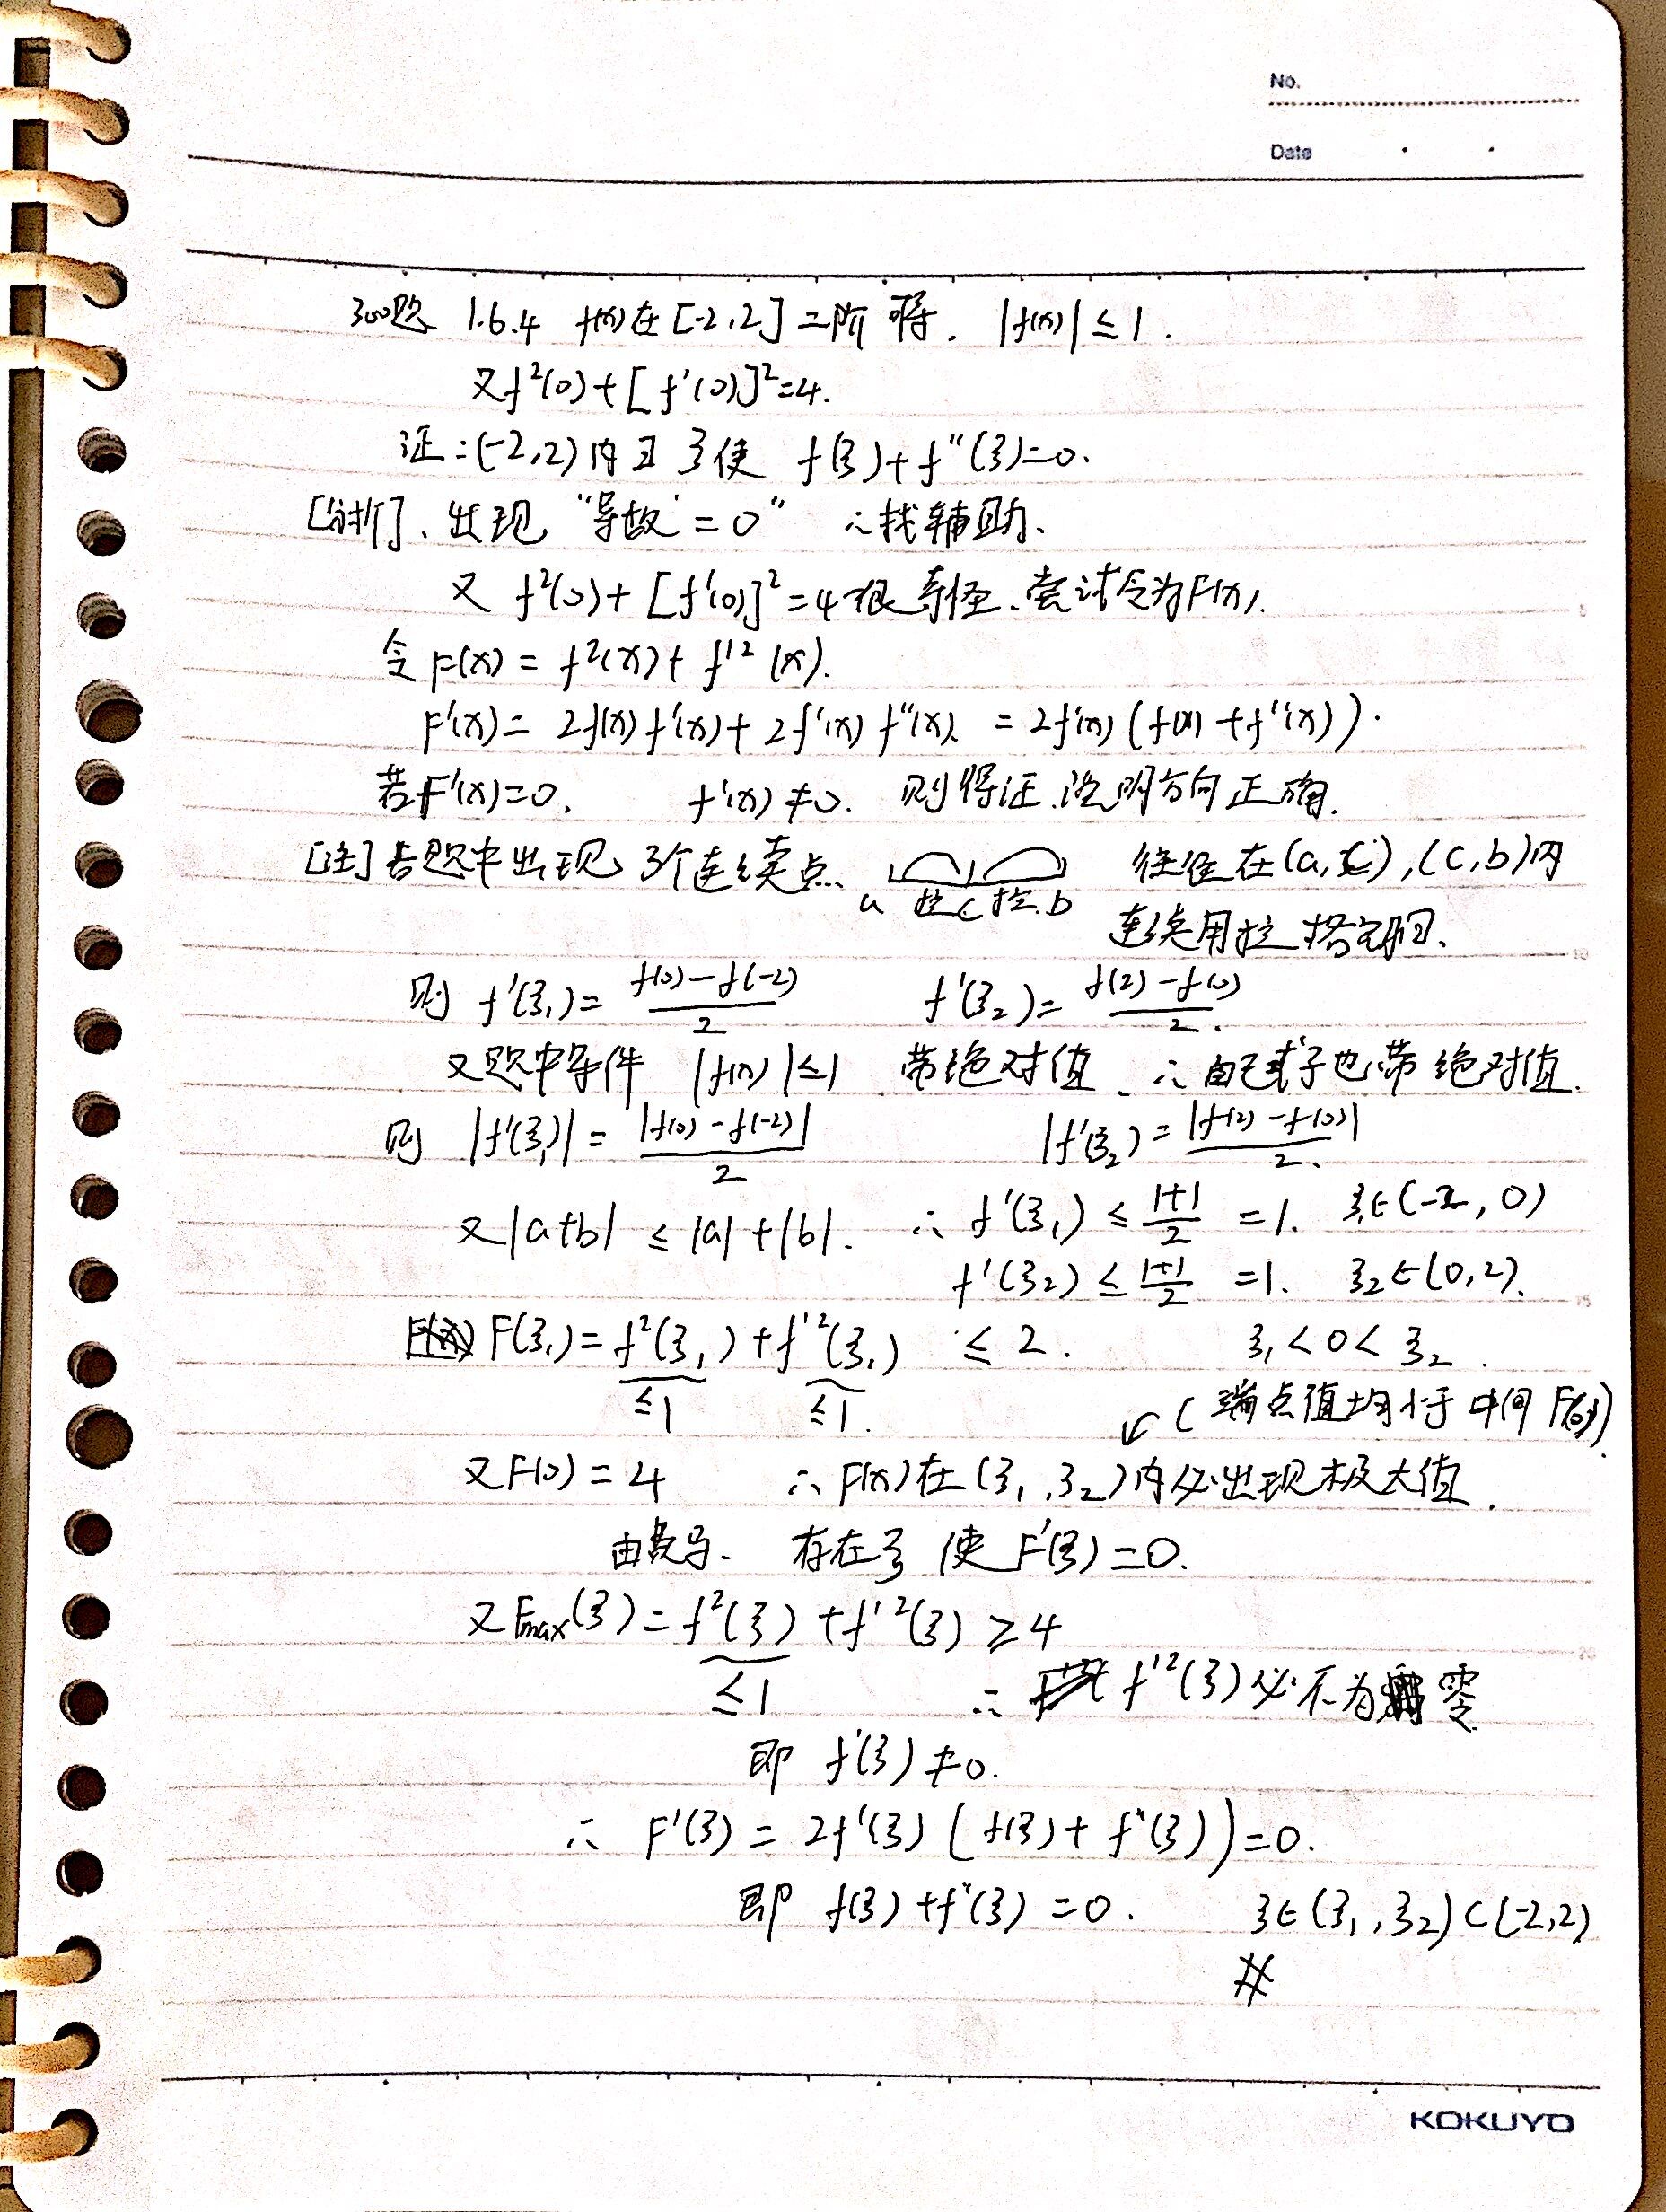 No.
Date
300题 1.6.4 f(x)在[-2,2]二阶可导. |f(x)|≤1.
又f²(0)+[f'(0)]²=4.
证:(-2,2)内∃ξ使 f(ξ)+f''(ξ)=0.
[分析]、出现 "导数=0" ∴找辅助、
又 f²(0)+[f'(0)]²=4很奇怪、尝试令为F(x).
令F(x)=f²(x)+f'²(x).
F'(x)=2f(x)f'(x)+2f'(x)f''(x). =2f'(x)(f(x)+f''(x)).
若F'(x)=0. f'(x)≠0. 则得证、说明方向正确.
[注]若题中出现3个连续点、 往往在(a,c),(c,b)内
a 拉 c 拉 b
连续用拉格朗日、
则 f'(ξ₁)=\frac{f(0)-f(-2)}{2} f'(ξ₂)=\frac{f(2)-f(0)}{2}.
又题中条件 |f(x)|≤1 带绝对值、∴自己式子也带绝对值.
则 |f'(ξ₁)|=\frac{|f(0)-f(-2)|}{2} |f'(ξ₂)=\frac{|f(2)-f(0)|}{2}.
又|a+b|≤|a|+|b|. ∴ f'(ξ₁)≤\frac{1+1}{2}=1. ξ₁∈(-2,0)
f'(ξ₂)≤\frac{1+1}{2}=1. ξ₂∈(0,2).
F(ξ₁)=f²(ξ₁)+f'²(ξ₁) ≤2. ξ₁<0<ξ₂.
≤1 ≤1. ↙(端点值均小于中间F(0)).
又F(0)=4 ∴F(x)在(ξ₁,ξ₂)内必出现极大值.
由费马. 存在ξ使F'(ξ)=0.
又Fmax(ξ)=f²(ξ)+f'²(ξ)≥4
≤1 ∴ f'²(ξ)必不为零
即 f'(ξ)≠0.
∴ F'(ξ)=2f'(ξ)(f(ξ)+f''(ξ))=0.
即 f(ξ)+f''(ξ)=0. ξ∈(ξ₁,ξ₂)⊂(-2,2)
#
KOKUYO